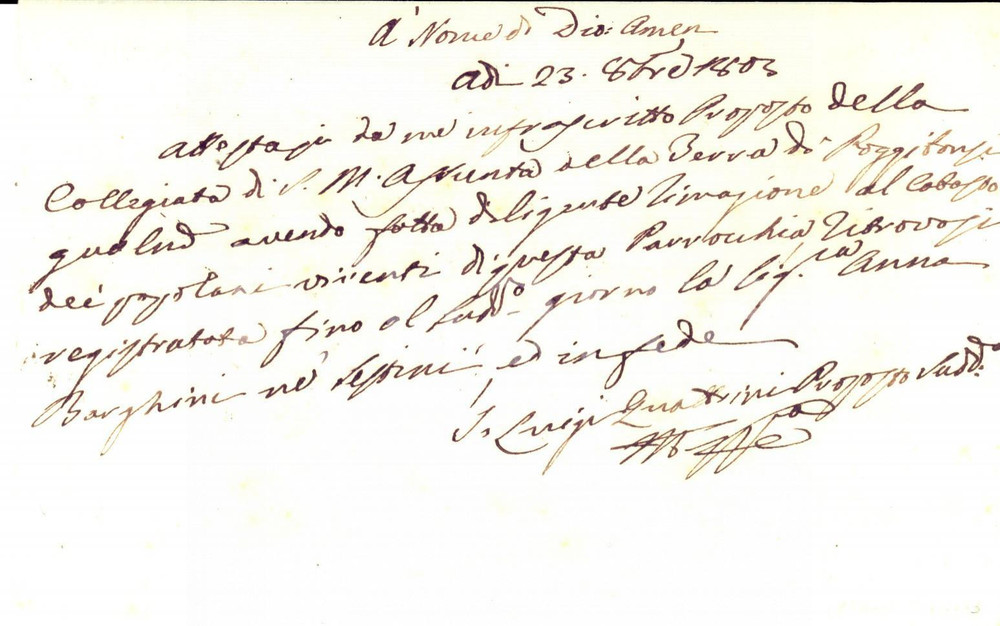 A' Nome di Dio: Amen
Adì 23. 8bre 1803
Attestasi da me infrascritto Proposto della
Collegiata di S. M. Assunta della Terra di Poggibonsi
qualm.e avendo fatta diligente ricerca al Catasto
dei popolani viventi di questa Parrocchia ritrovasi
registrata fino al sudd.o giorno la Sig.ra Anna
Barghini ne' Pestini, ed in fede
S. Luigi Quattrini Proposto Sudd.o